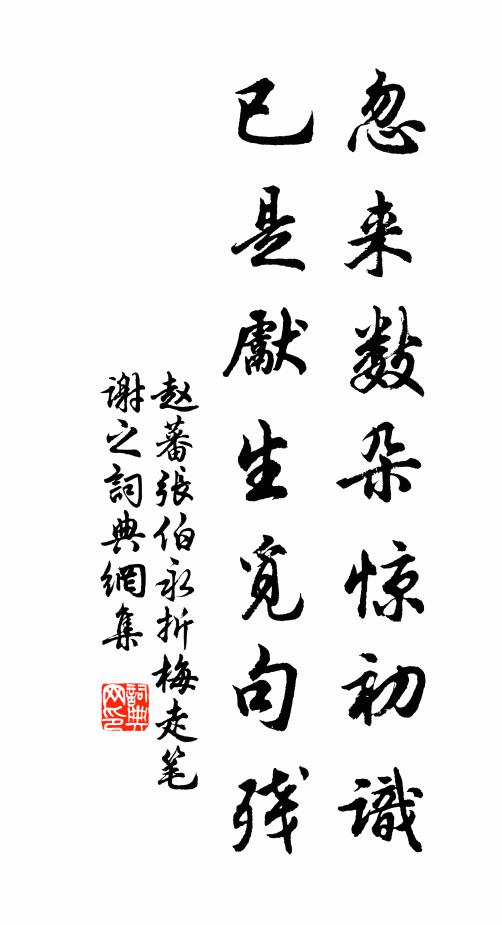 忽来数朵惊初識
已是獻生觅句残
赵蕃張伯永折梅走笔
谢之詞典網集
詞典网印